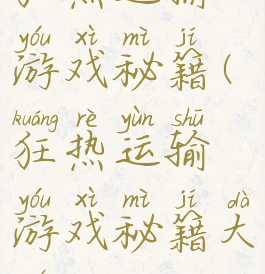 yóu xì mì jí
游戏秘籍(
kuáng rè yùn shū
狂热运输
yóu xì mì jí dà
游戏秘籍大